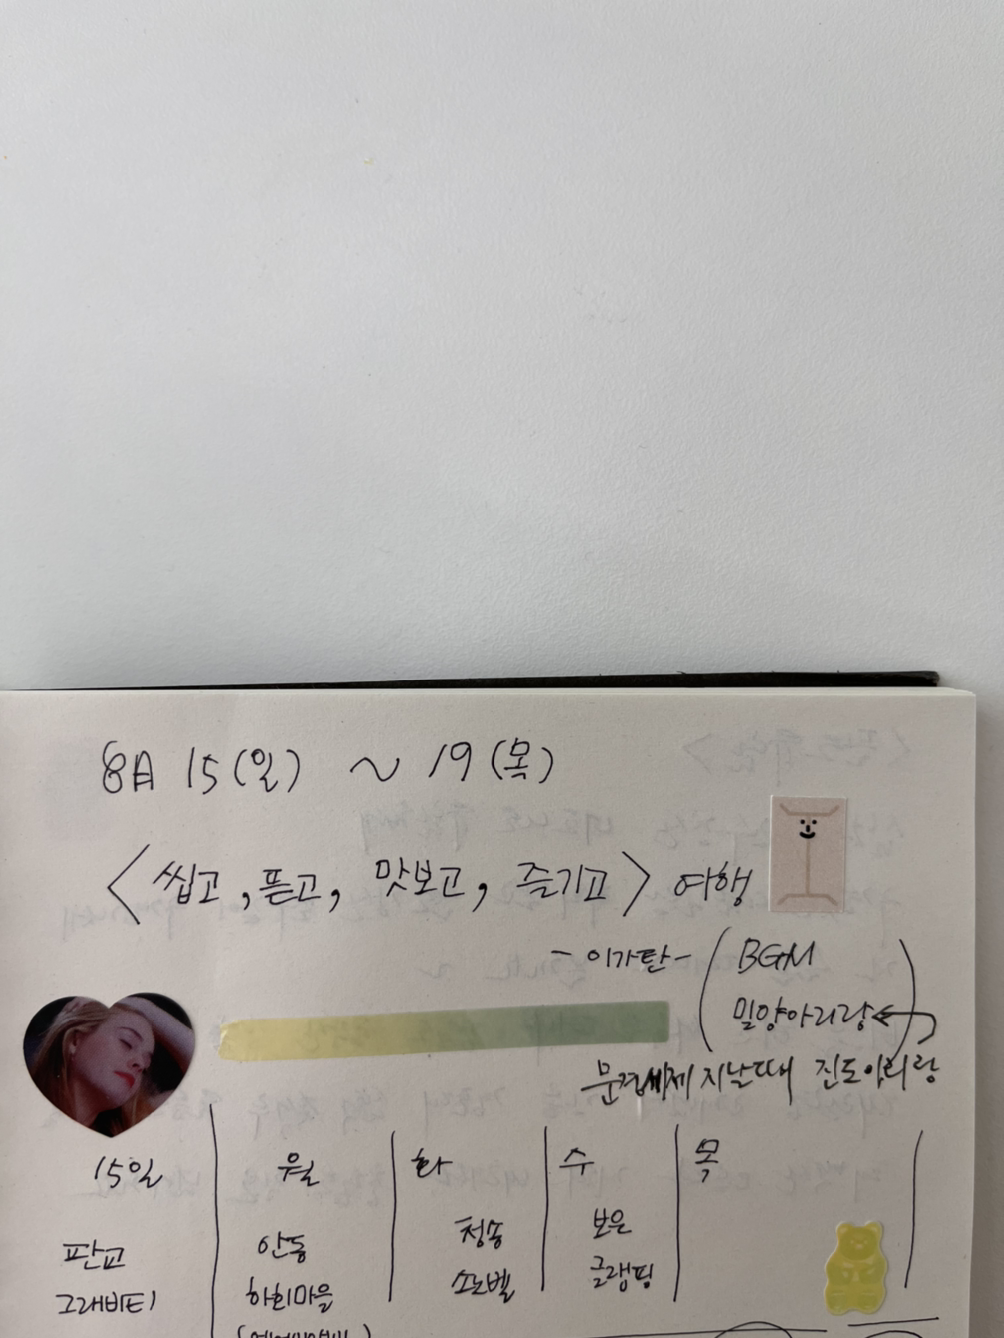 8月 15(일) ~ 19(목)
<씹고, 뜯고, 맛보고, 즐기고> 여행
- 이가탄 - (BGM
밀양아리랑)
문경새제 지날때 진도아리랑
15일 월 화 수 목
판교 안동 청송 보은
그래비티 하회마을 소노벨 글램핑